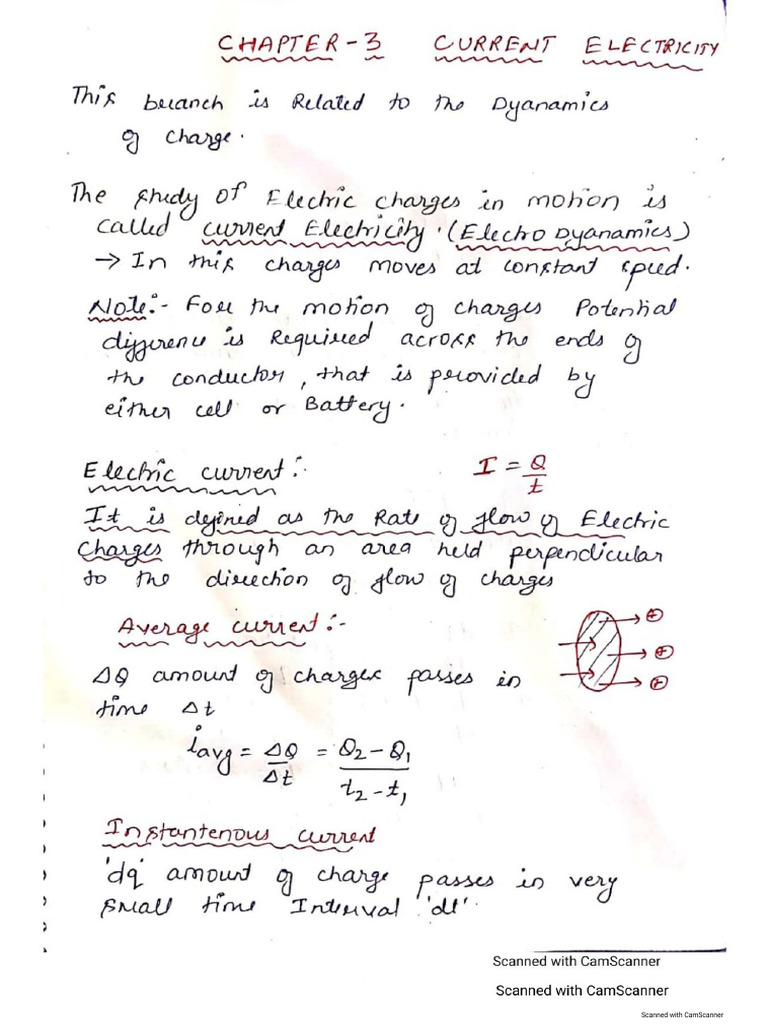 CHAPTER-3 CURRENT ELECTRICITY
This branch is Related to the Dyanamics
of charge.
The study of Electric charges in motion is
called current Electricity. (Electro Dyanamics)
→ In this charges moves at constant speed.
Note:- For the motion of charges Potential
difference is Required across the ends of
the conductor, that is provided by
either cell or Battery.
Electric current:- I = Q/t
It is defined as the Rate of flow of Electric
Charges through an area held perpendicular
to the direction of flow of charges
Average current:-
ΔQ amount of charges passes in
time Δt
iavg = ΔQ/Δt = Q2-Q1/t2-t1
⊕
⊕
⊕
Instantenous current
'dq' amount of charge passes in very
small time Interval 'dt'.
Scanned with CamScanner
Scanned with CamScanner
Scanned with CamScanner